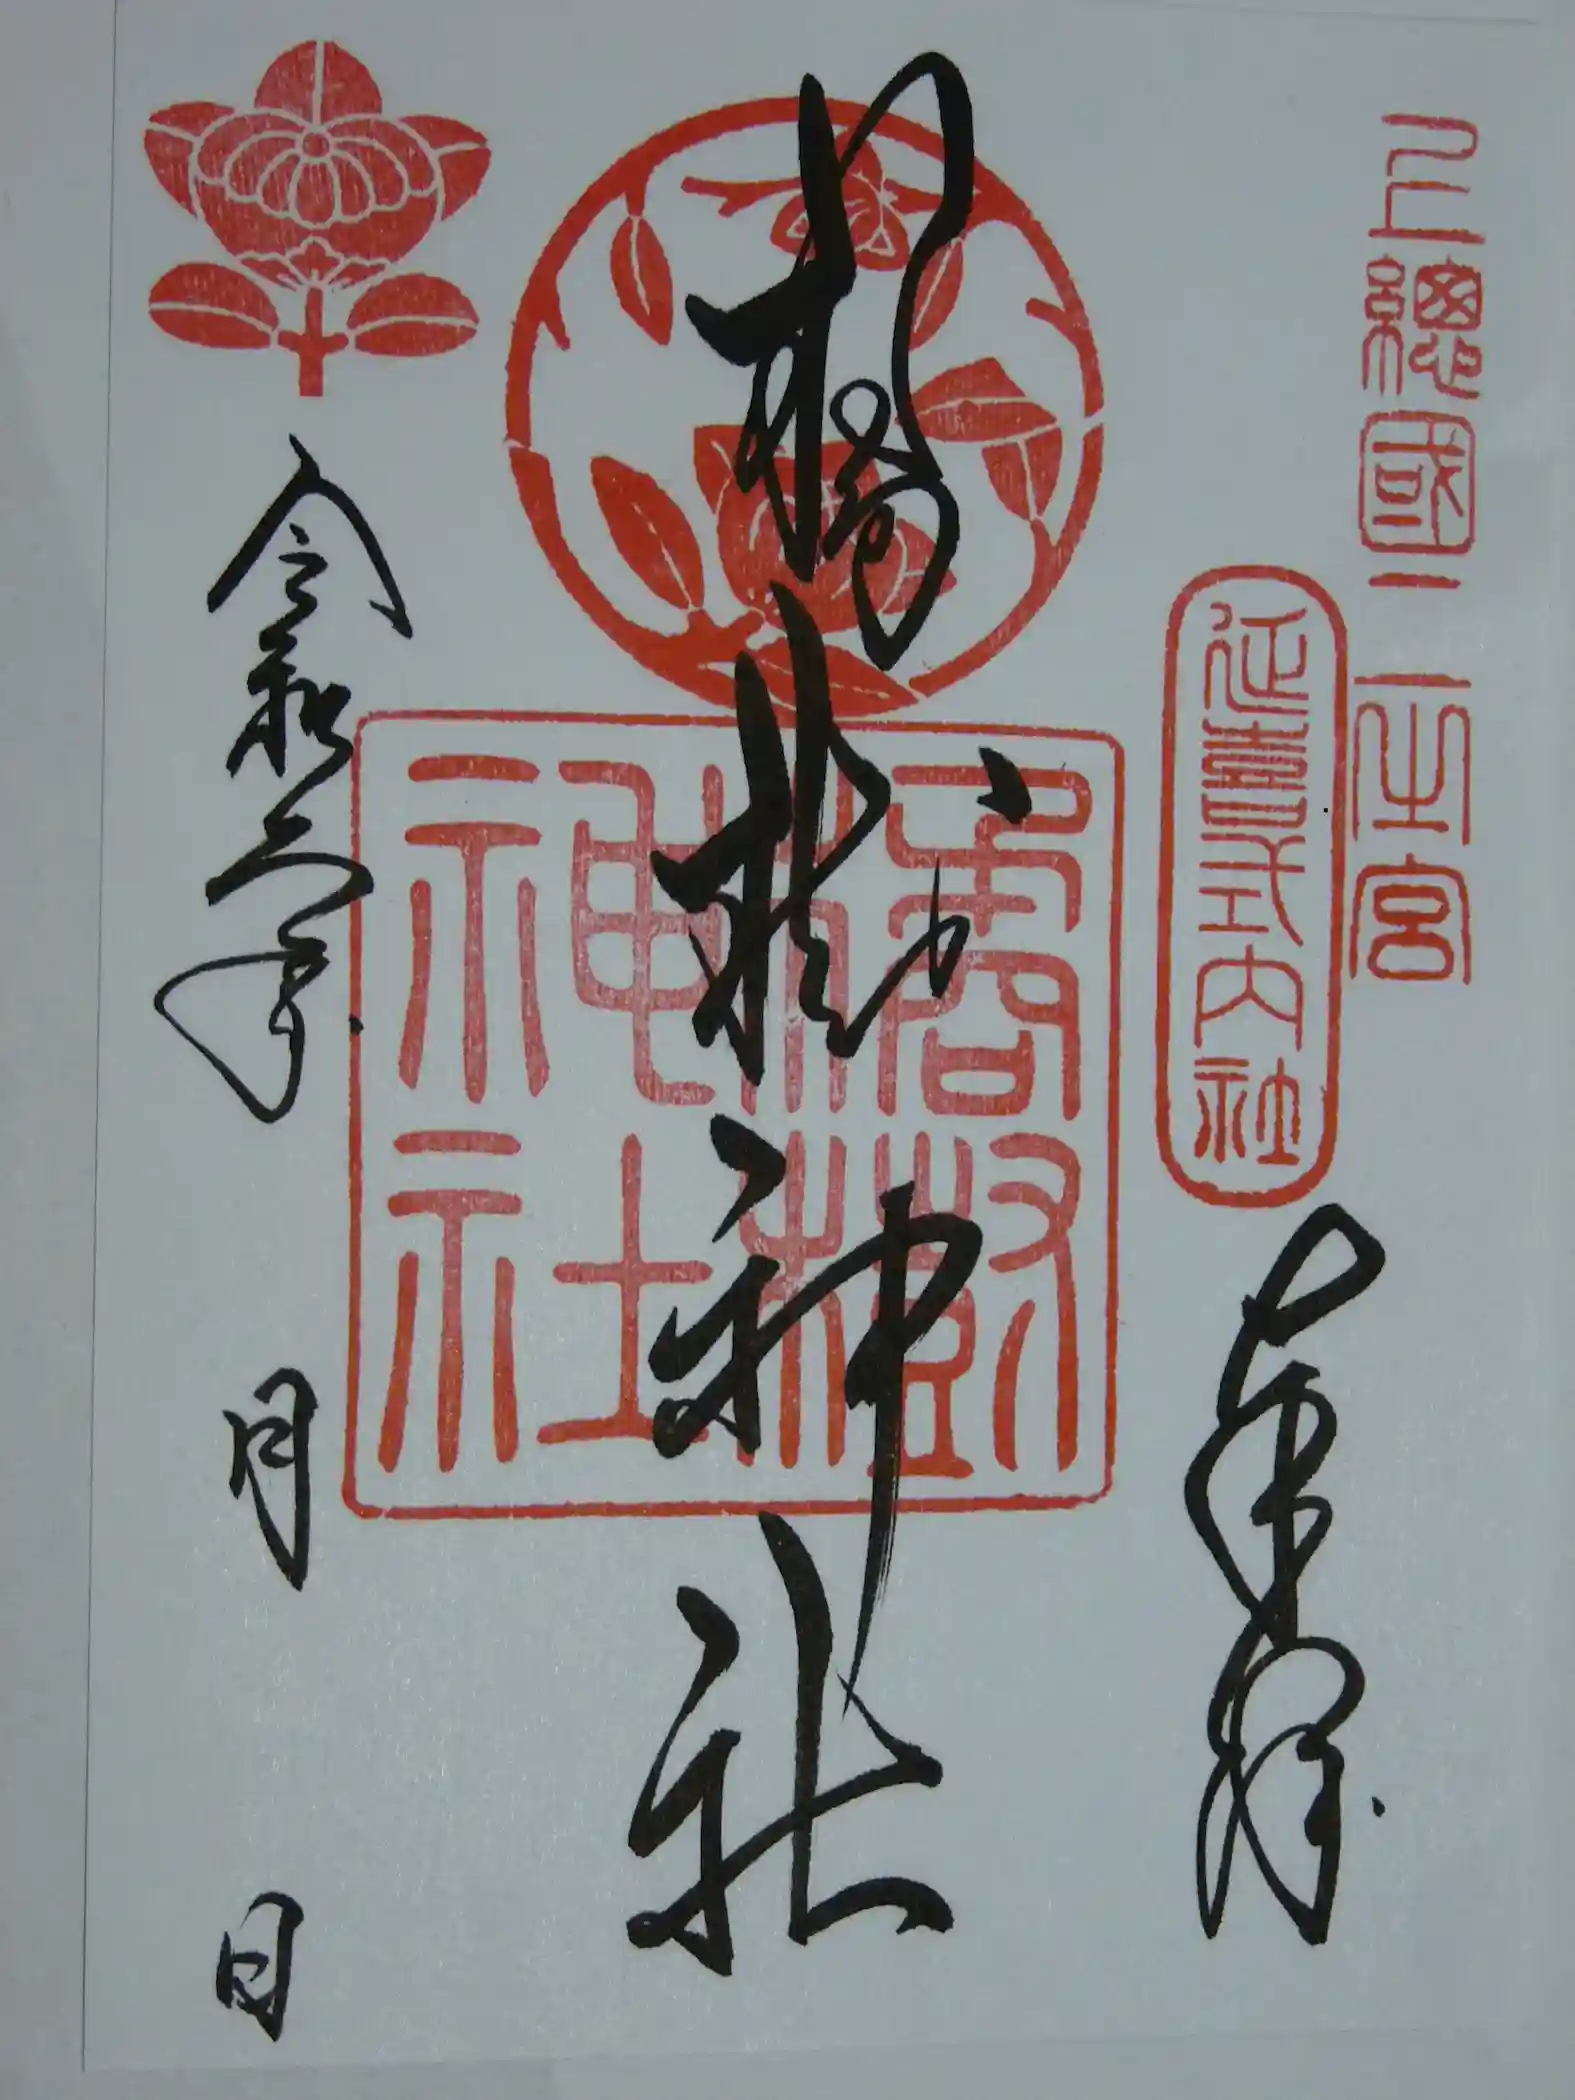 上總國二之宮
延喜式内社
奉拝
橘樹神社
橘樹神社
令和 年 月 日